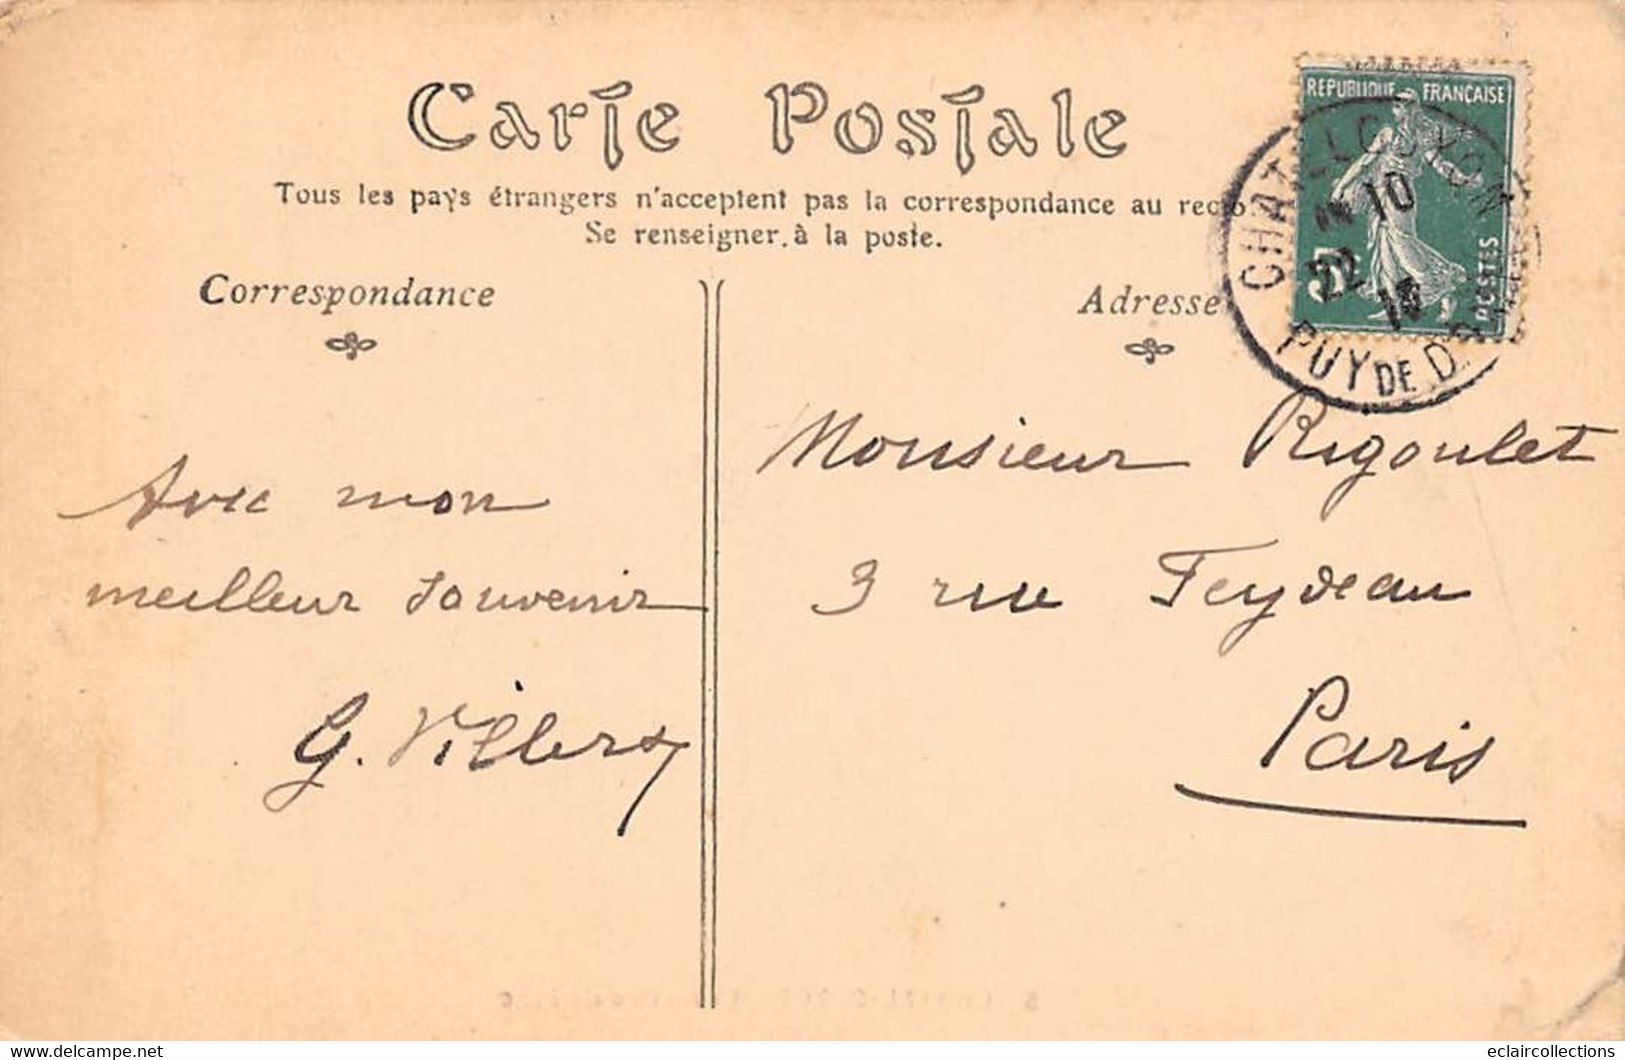 Carte Postale
Tous les pays étrangers n'acceptent pas la correspondance au recto.
Se renseigner à la poste.
Correspondance
Adresse
REPUBLIQUE FRANÇAISE
5c
POSTES
CHATELGUYON
10
22
PUY DE DOME
Avec mon
meilleur souvenir
G. Villers
Monsieur Rigoulet
3 rue Feydeau
Paris
eclaircollections
www.delcampe.net